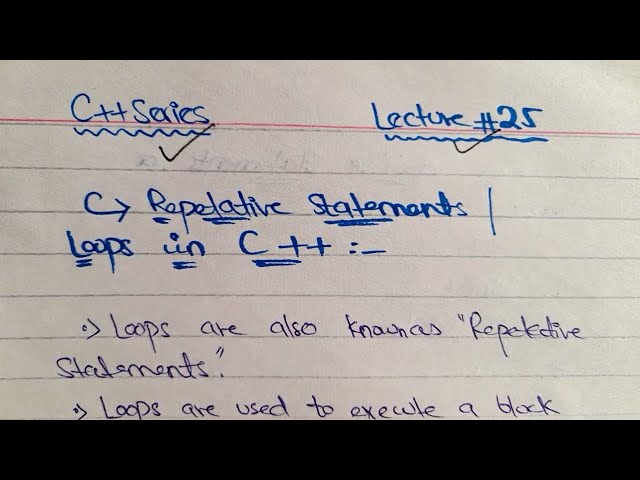 C++ Series
Lecture #25
C→ Repetative Statements |
Loops in C++ :-
·> Loops are also known as "Repetetive
Statements".
·> Loops are used to execute a block